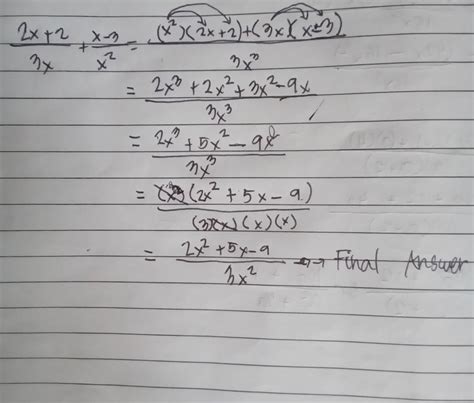 (2x+2)/(3x) + (x-3)/(x²) = ((x²)(2x+2)+(3x)(x-3))/(3x³)
= (2x³ + 2x² + 3x² - 9x)/(3x³)
= (2x³ + 5x² - 9x)/(3x³)
= (x)(2x² + 5x - 9)/((3)(x)(x)(x))
= (2x² + 5x - 9)/(3x²) →→ Final Answer